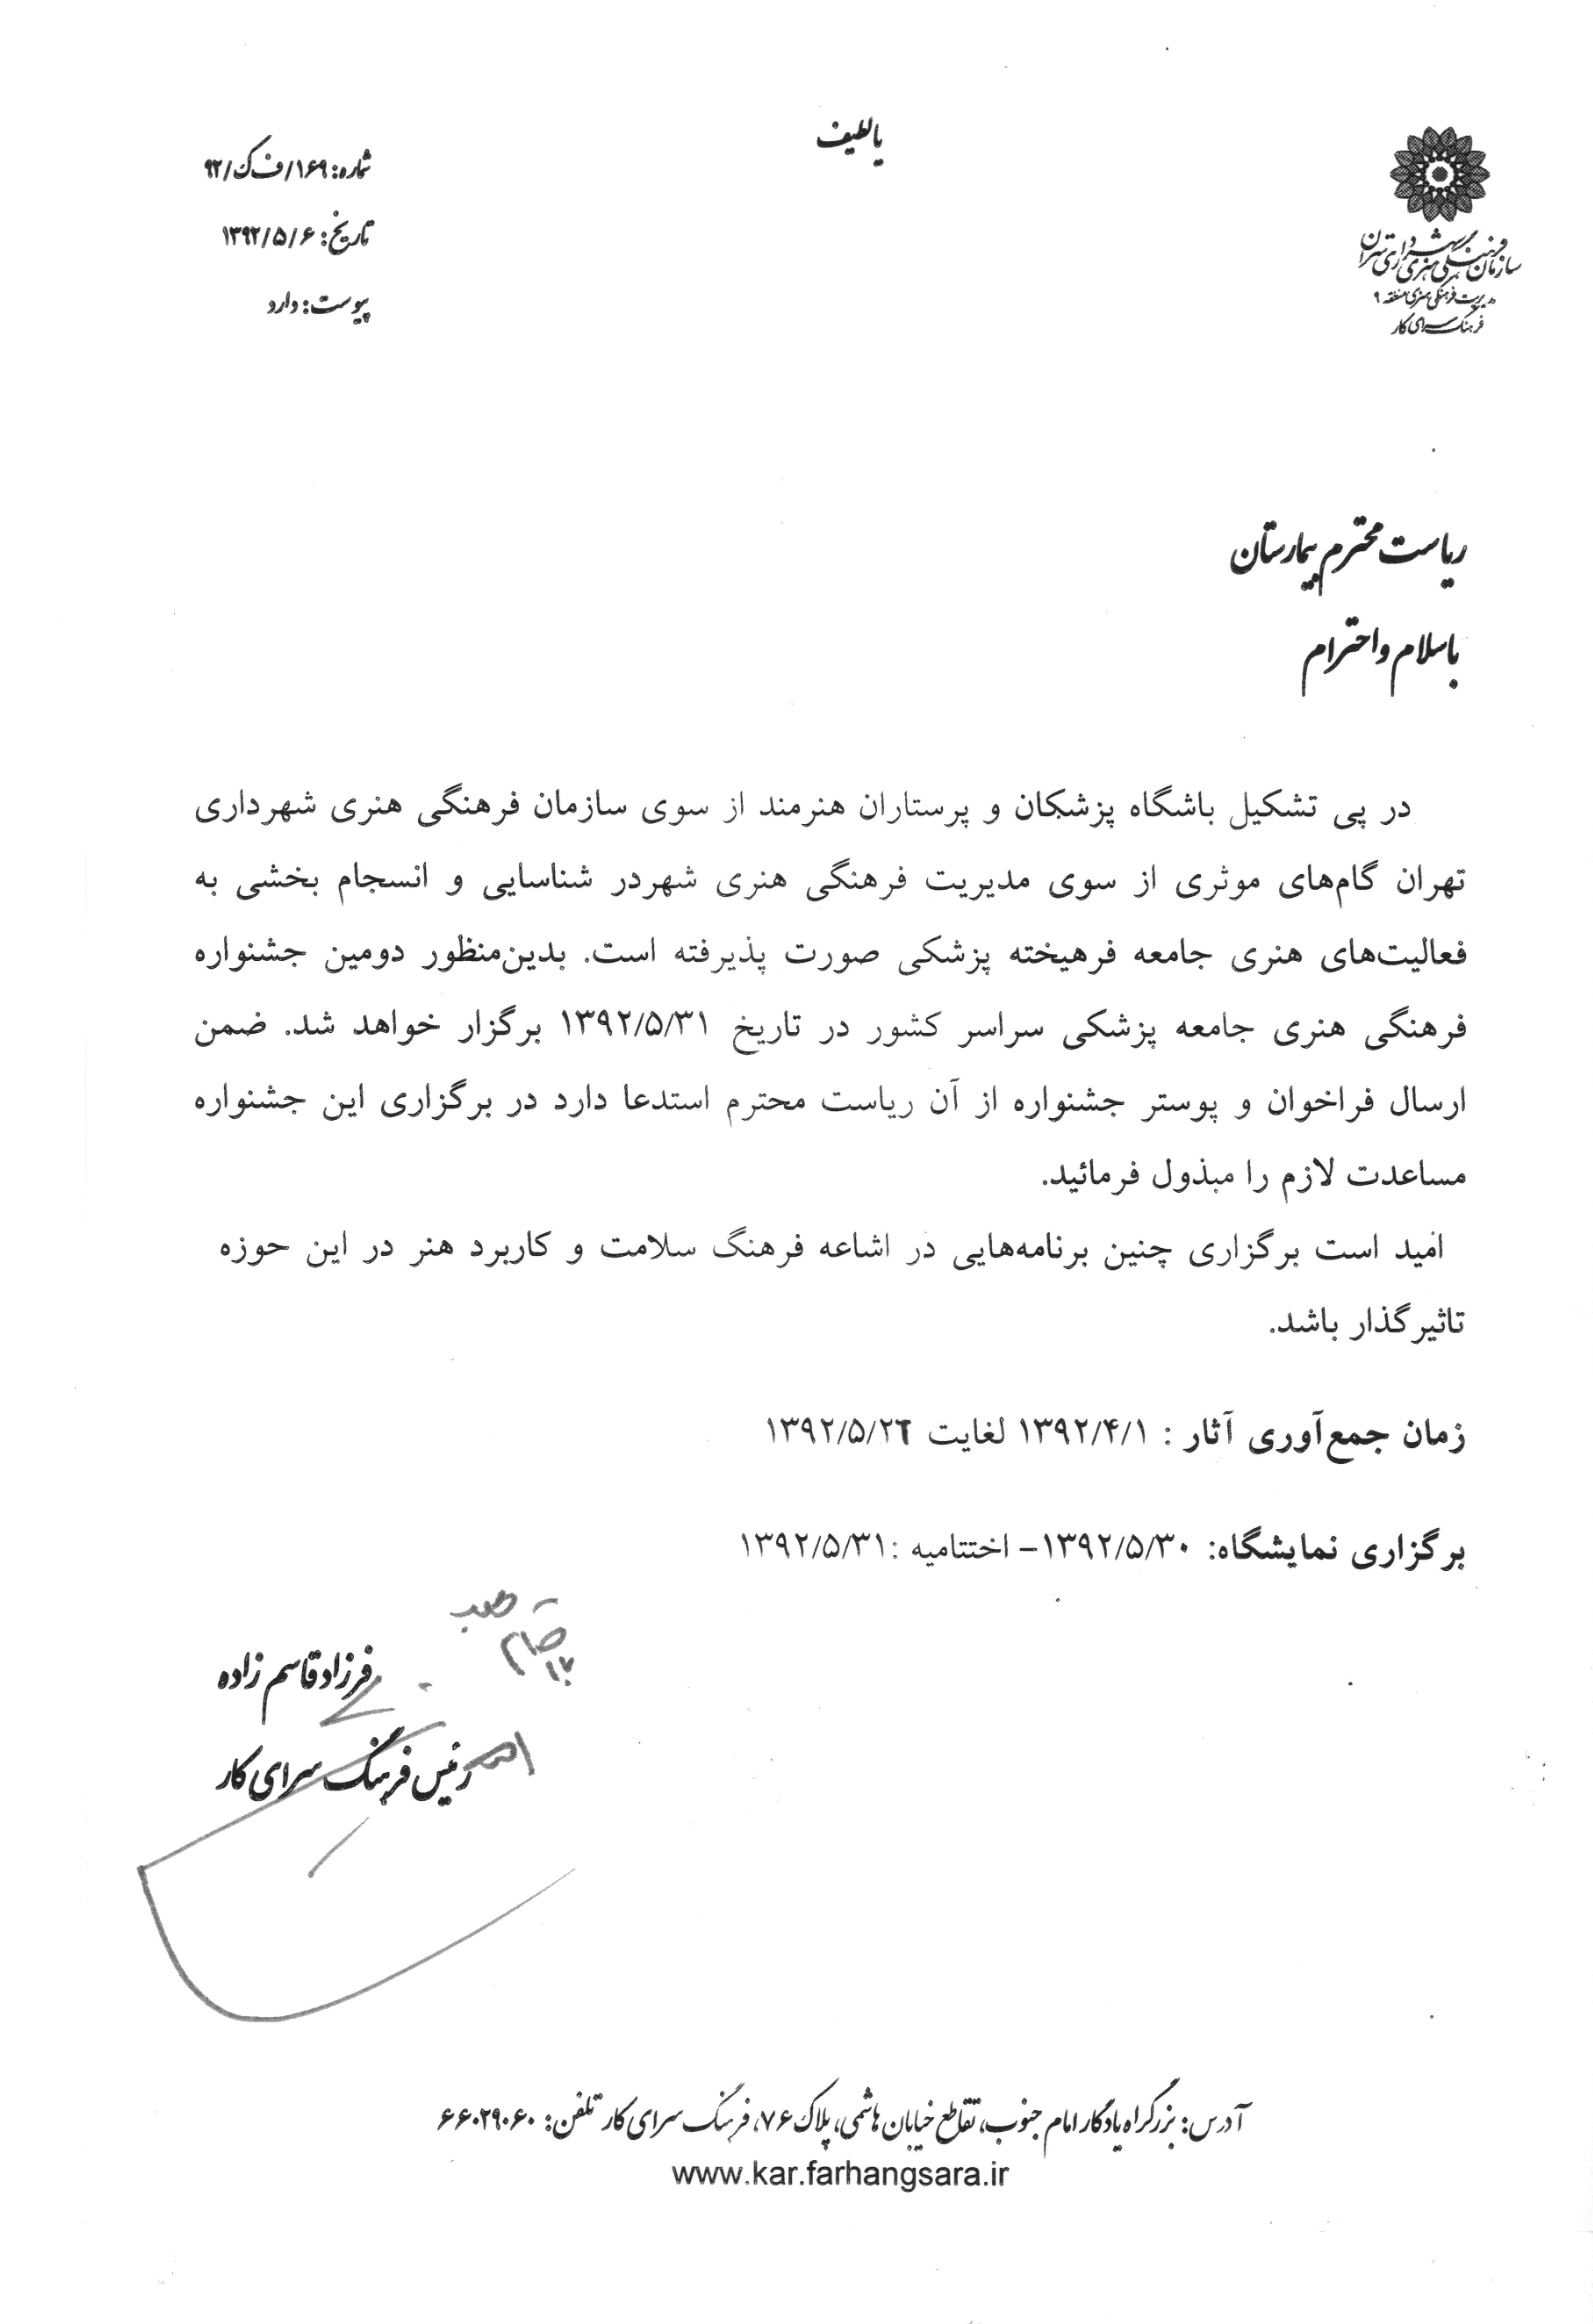 یا لطیف
شماره: ۱۶۹/ف ک/۹۲
تاریخ: ۱۳۹۲/۵/۶
پیوست: دارد
سازمان فرهنگی هنری شهرداری تهران
مدیریت فرهنگی هنری منطقه ۹
فرهنگ سرای کار
ریاست محترم بیمارستان
با سلام و احترام
در پی تشکیل باشگاه پزشکان و پرستاران هنرمند از سوی سازمان فرهنگی هنری شهرداری
تهران گام‌های موثری از سوی مدیریت فرهنگی هنری شهردر شناسایی و انسجام بخشی به
فعالیت‌های هنری جامعه فرهیخته پزشکی صورت پذیرفته است. بدین‌منظور دومین جشنواره
فرهنگی هنری جامعه پزشکی سراسر کشور در تاریخ ۱۳۹۲/۵/۳۱ برگزار خواهد شد. ضمن
ارسال فراخوان و پوستر جشنواره از آن ریاست محترم استدعا دارد در برگزاری این جشنواره
مساعدت لازم را مبذول فرمائید.
امید است برگزاری چنین برنامه‌هایی در اشاعه فرهنگ سلامت و کاربرد هنر در این حوزه
تاثیرگذار باشد.
زمان جمع‌آوری آثار : ۱۳۹۲/۴/۱ لغایت
برگزاری نمایشگاه: ۱۳۹۲/۵/۳۰- اختتامیه :۱۳۹۲/۵/۳۱
فرزاد قاسم زاده
رئیس فرهنگ سرای کار
آدرس: بزرگراه یادگار امام جنوب، تقاطع خیابان هاشمی، پلاک ۷۶، فرهنگ سرای کار تلفن: ۶۶۰۲۹۰۶۰
www.kar.farhangsara.ir